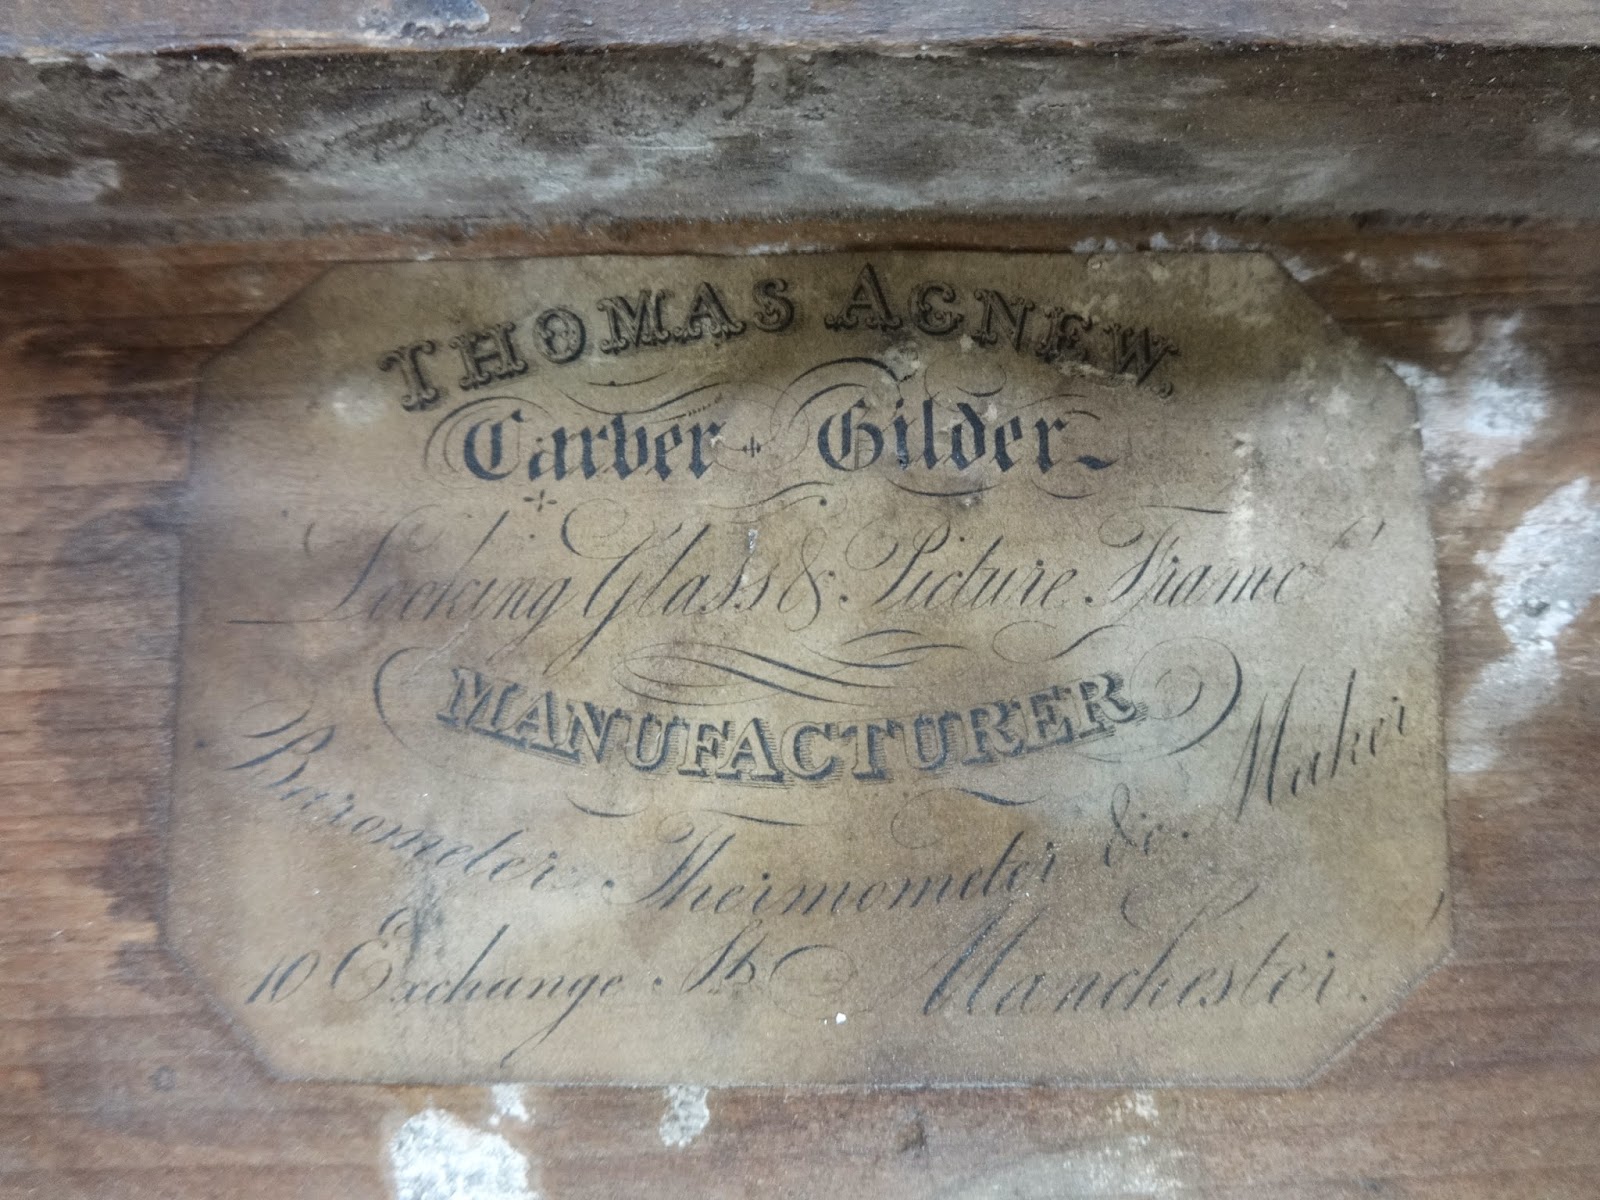 THOMAS AGNEW.
Carver + Gilder
Looking Glass & Picture Frame
MANUFACTURER
Barometer Thermometer &c. Maker
10 Exchange St. Manchester.